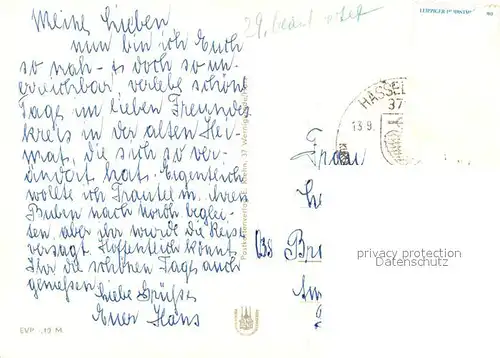 Meine Lieben
nun bin ich Euch
so nah – u. doch so un-
erreichbar, verlebe schöne
Tage im lieben Freundes
kreis in der alten Hei-
mat, die sich so ver-
ändert hat. Eigentlich
wollte ich Trautel m. ihren
Buben nach beglei-
ten, aber ihr wurde die Reise
versagt. Hoffentlich könnt
Ihr die schönen Tage auch
genießen
Liebe Grüße
Euer Hans
EVP -,10 M.
29.
HASSEL
37
13.9.
Frau
privacy protection
Datenschutz